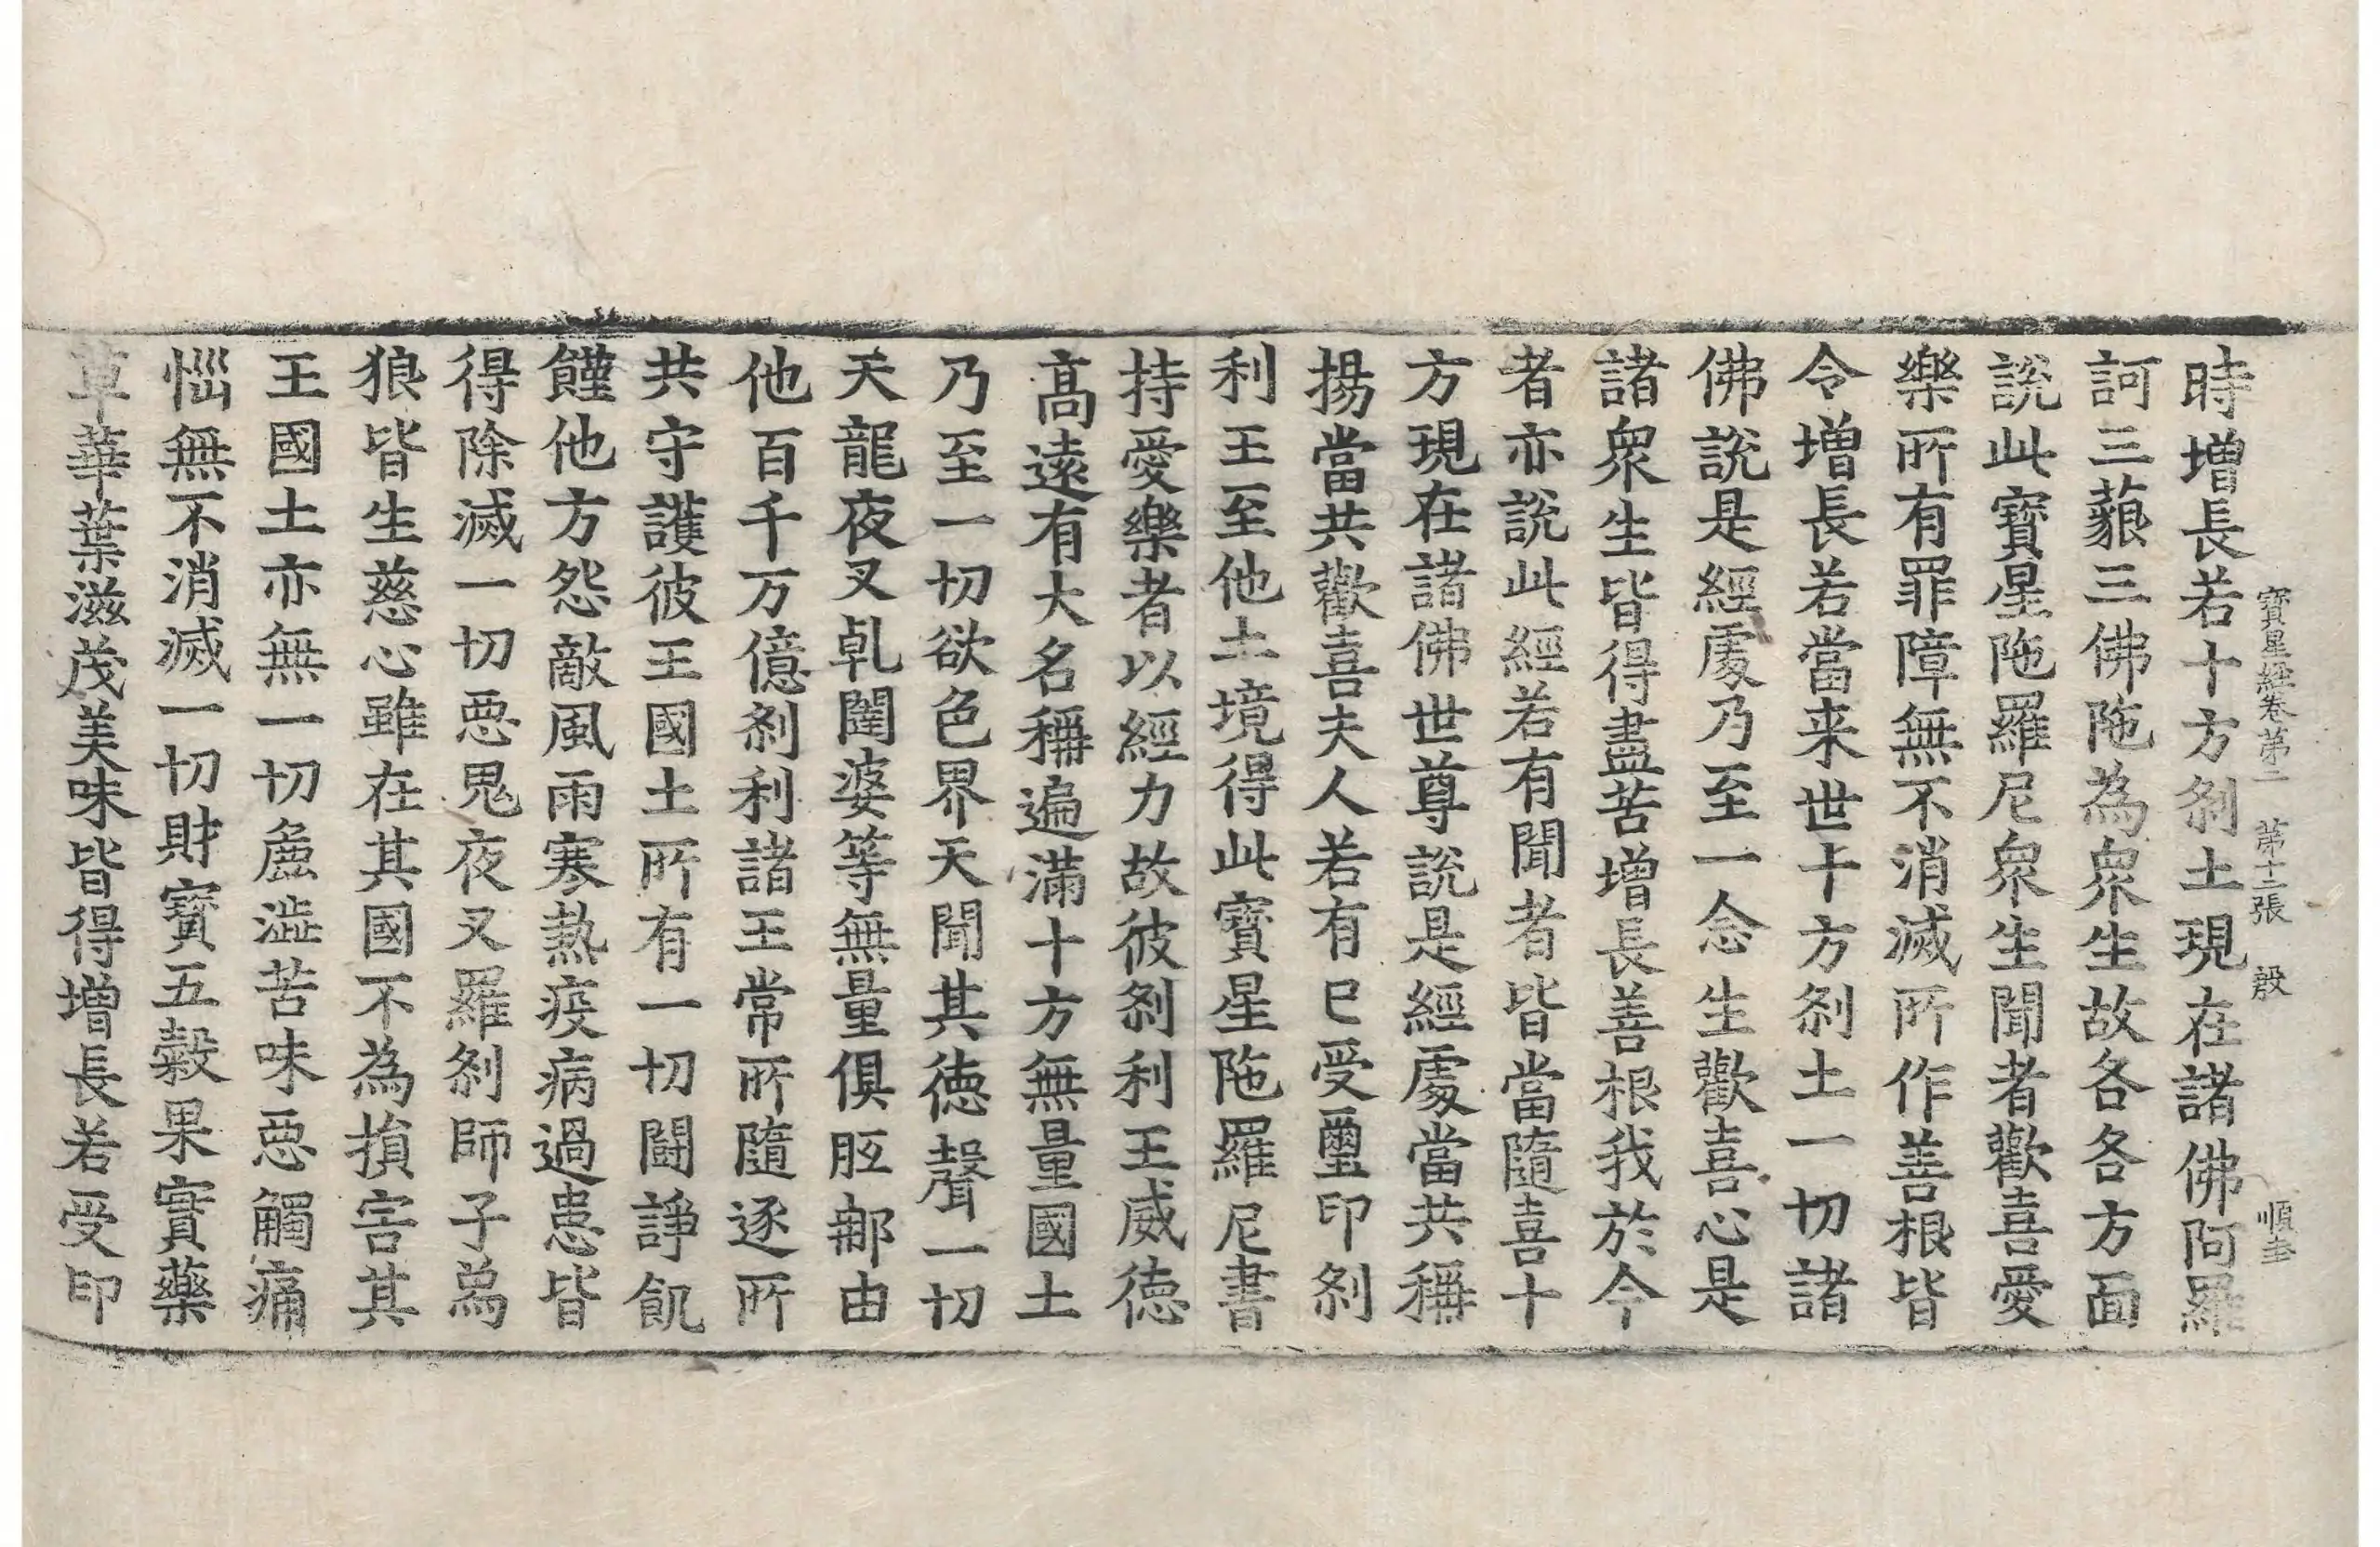 寶星經卷第二　第十二張　殷　順圭
時增長若十方刹土現在諸佛阿羅
訶三藐三佛陁為衆生故各各方面
說此寶星陁羅尼衆生聞者歡喜愛
樂所有罪障無不消滅所作善根皆
令增長若當来世十方刹土一切諸
佛說是經處乃至一念生歡喜心是
諸衆生皆得盡苦增長善根我於今
者亦說此經若有聞者皆當隨喜十
方現在諸佛世尊說是經處當共稱
揚當共歡喜夫人若有已受璽印刹
利王至他土境得此寶星陁羅尼書
持愛樂者以經力故彼刹利王威德
高遠有大名稱遍滿十方無量國土
乃至一切欲色界天聞其德聲一切
天龍夜叉乹闥婆等無量俱胝那由
他百千万億刹利諸王常所隨逐所
共守護彼王國土所有一切鬪諍飢
饉他方怨敵風雨寒熱疫病過患皆
得除滅一切惡鬼夜叉羅刹師子為
狼皆生慈心雖在其國不為損害其
王國土亦無一切麁澁苦味惡觸痛
惱無不消滅一切財寶五穀果實藥
草華葉滋茂美味皆得增長若受印